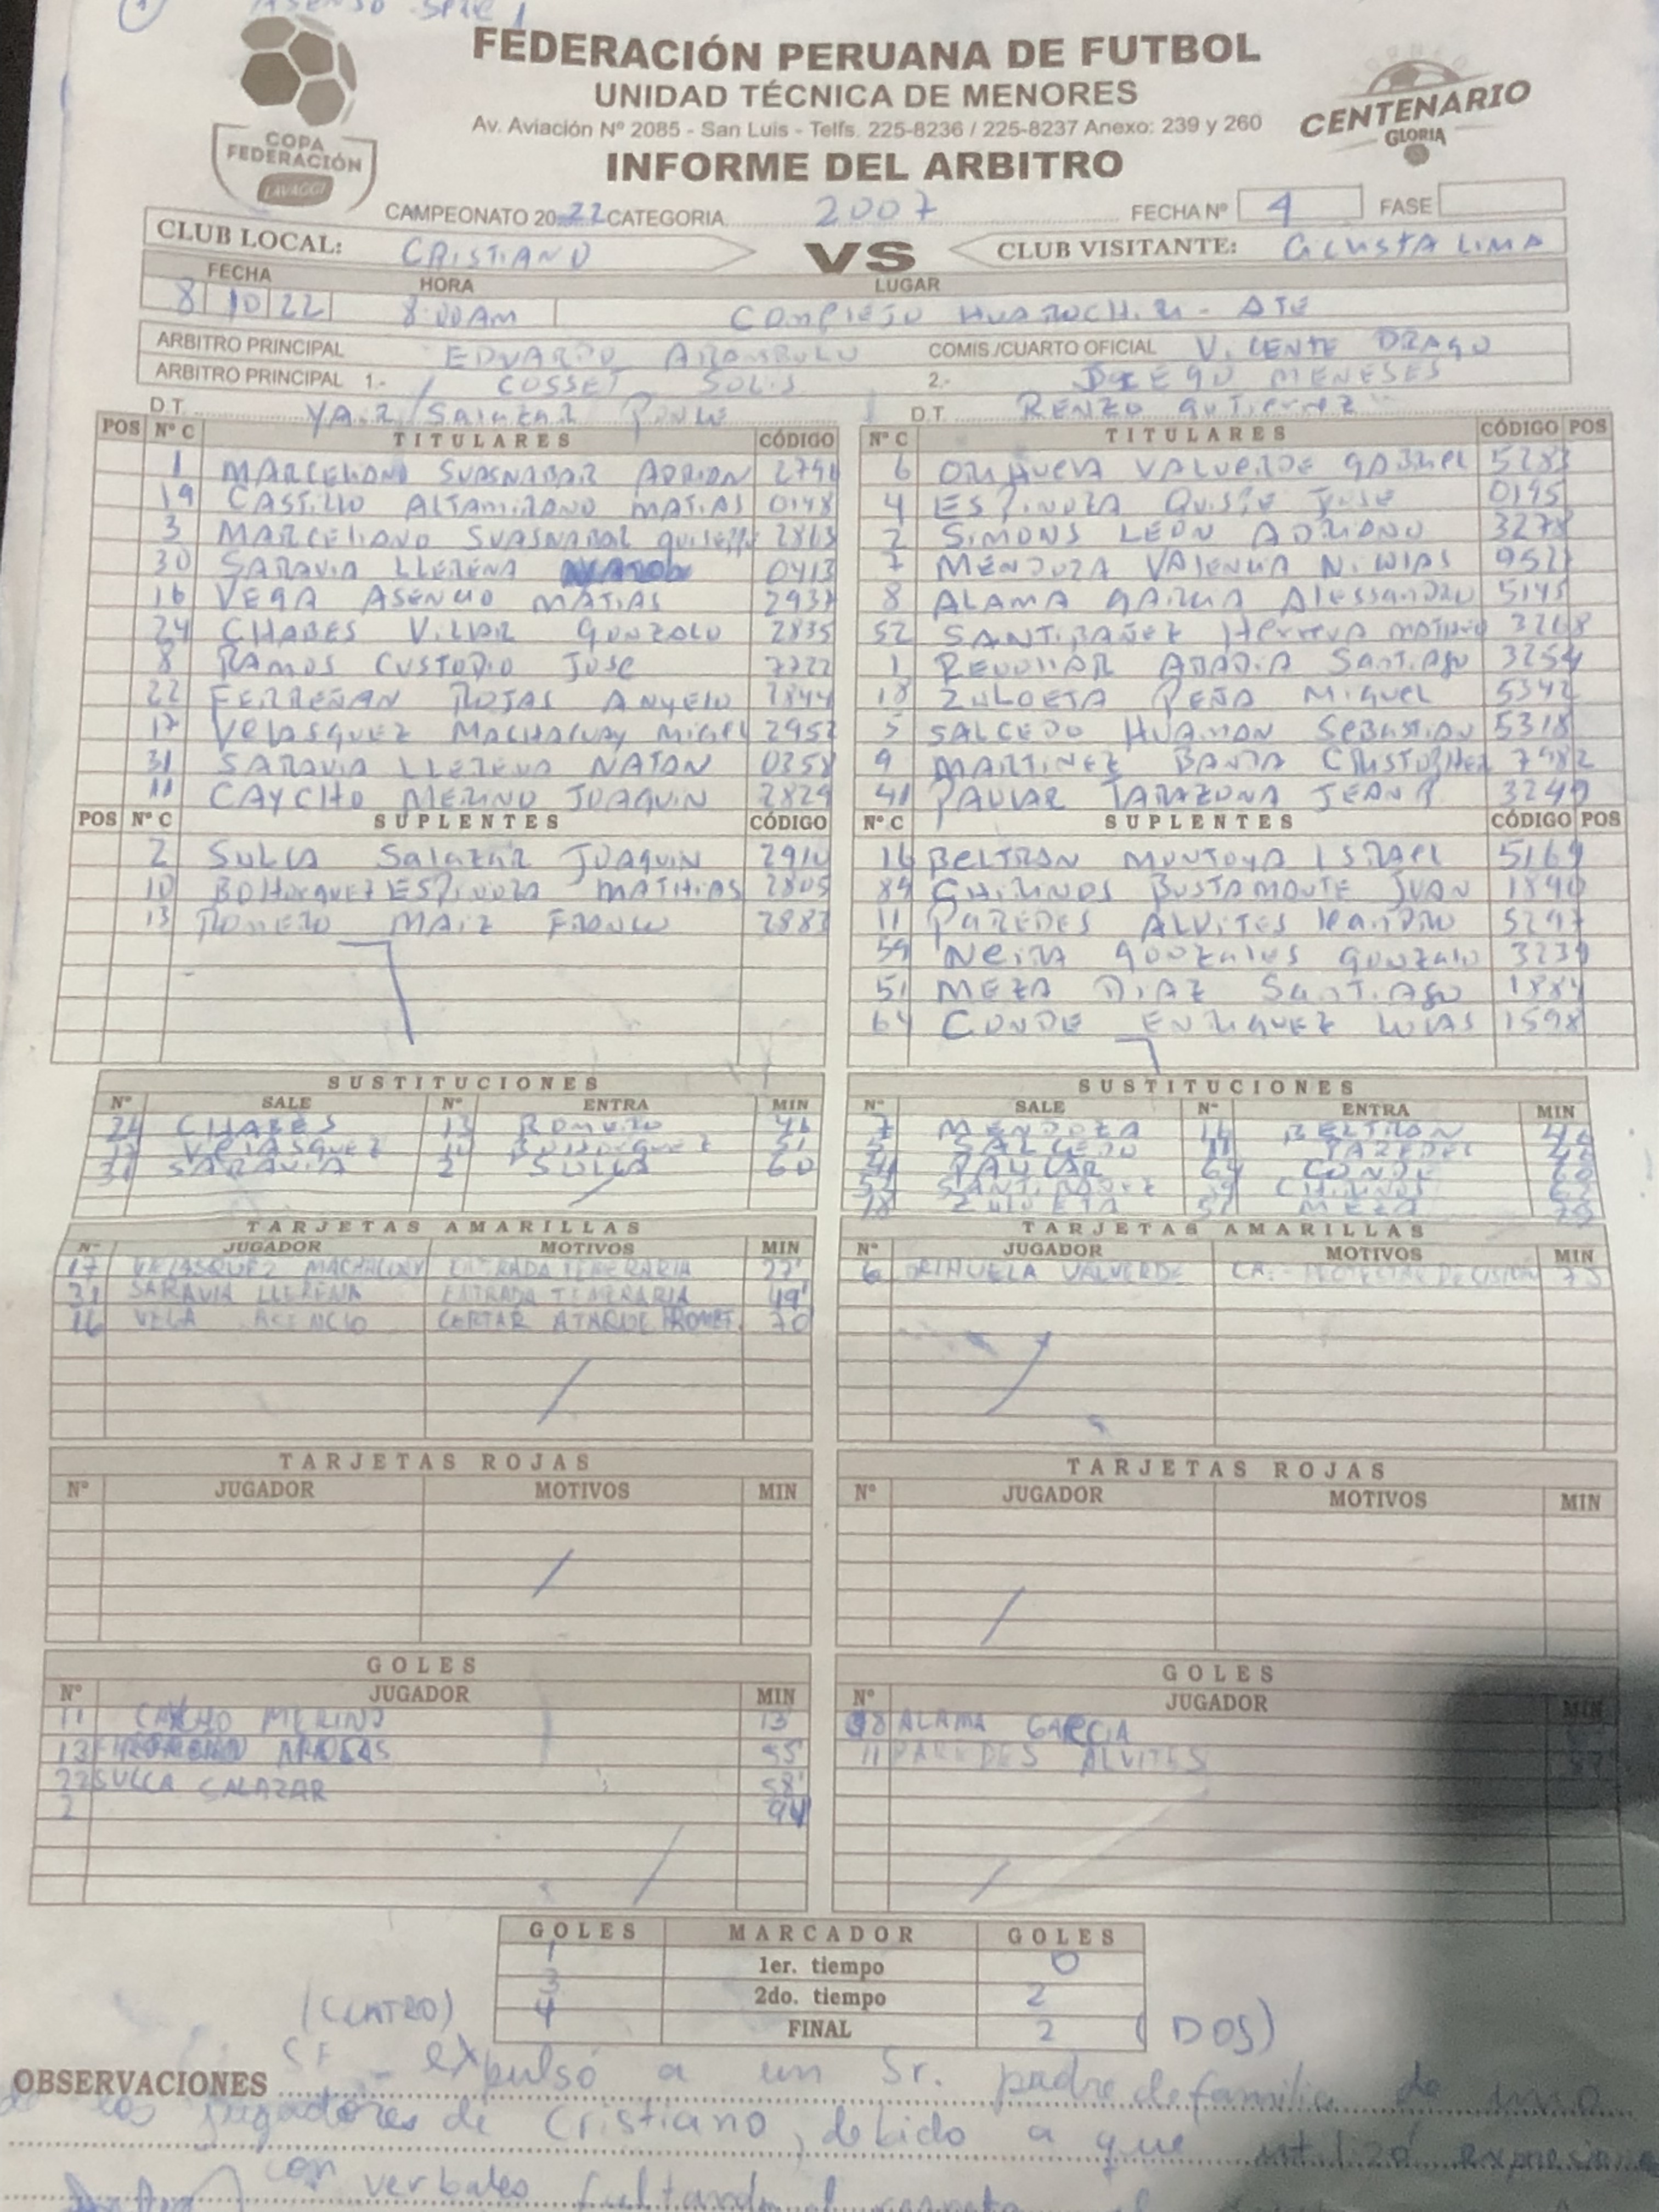 FEDERACIÓN PERUANA DE FUTBOL
UNIDAD TÉCNICA DE MENORES
Av. Aviación Nº 2085 - San Luis - Telfs. 225-8236 / 225-8237 Anexo: 239 y 260
INFORME DEL ARBITRO
COPA FEDERACIÓN LAVAGGI
CENTENARIO GLORIA
CAMPEONATO 2022 CATEGORIA 2007 FECHA Nº 4 FASE
CLUB LOCAL: CRISTIANO VS CLUB VISITANTE: LIMA
FECHA HORA LUGAR
8 10 22 8:00AM COMPLEJO - ATE
ARBITRO PRINCIPAL EDUARDO COMIS./CUARTO OFICIAL VICENTE DRAGO
ARBITRO PRINCIPAL 1.- COSSET SOLIS 2.- MENESES
D.T. SALAZAR D.T. RENZO GUTIERREZ
POS Nº C TITULARES CÓDIGO Nº C TITULARES CÓDIGO POS
1 MARCELIANO SUASNABAR ADRIAN 6 VALVERDE GABRIEL 5283
19 CASTILLO ALTAMIRANO MATIAS 0148 4 ESPINOZA QUISPE JOSE 0195
3 MARCELIANO SUASNABAR 2 SIMONS LEON ADRIANO 3278
30 SARAVIA LLERENA 0413 7 MENDOZA VALENCIA NICOLAS
16 VEGA ASENCIO MATIAS 2937 8 ALAMA GARCIA ALESSANDRO 5145
24 CHABES VILLAR GONZALO 2835 52 SANTIBAÑEZ HERRERA 3268
8 RAMOS CUSTODIO JOSE 7722 1 SANTIAGO 3254
22 FERREÑAN ROJAS ANGELO 2844 18 ZULOETA PEÑA MIGUEL 5342
17 VELASQUEZ MACHACUAY MIGUEL 2952 5 SALCEDO HUAMAN SEBASTIAN 5318
31 SARAVIA LLERENA NATAN 0358 9 MARTINEZ 7982
11 CAYCHO MERINO JOAQUIN 2829 41 PAUCAR TARAZONA JEAN P 3249
POS Nº C SUPLENTES CÓDIGO Nº C SUPLENTES CÓDIGO POS
2 SULCA SALAZAR JOAQUIN 2910 16 BELTRAN MONTOYA ISRAEL 5169
10 BOHORQUEZ ESPINOZA MATHIAS 2805 89 CHIRINOS BUSTAMANTE JUAN 1890
13 ROMERO MAIZ FRANCO 2883 11 PAREDES ALVITES 5297
59 NEIRA GONZALES GONZALO 3239
51 MEZA DIAZ SANTIAGO 1884
64 CONDE ENRIQUEZ LUCAS 1598
SUSTITUCIONES SUSTITUCIONES
Nº SALE Nº ENTRA MIN Nº SALE Nº ENTRA MIN
24 CHABES 13 ROMERO 46 7 MENDOZA 16 BELTRAN
17 VELASQUEZ 10 BOHORQUEZ 51 5 SALCEDO 11 PAREDES
31 SARAVIA 2 SULCA 60 41 PAUCAR 64 CONDE 60
52 SANTIBAÑEZ CHIRINOS
18 ZULOETA 51 MEZA
TARJETAS AMARILLAS TARJETAS AMARILLAS
Nº JUGADOR MOTIVOS MIN Nº JUGADOR MOTIVOS MIN
17 VELASQUEZ MACHACUAY ENTRADA TEMERARIA 27' 6 ORIHUELA VALVERDE PROTESTAR DECISION 75
31 SARAVIA LLERENA ENTRADA TEMERARIA 49'
16 VEGA ACENCIO CORTAR ATAQUE PROMET. 70
TARJETAS ROJAS TARJETAS ROJAS
Nº JUGADOR MOTIVOS MIN Nº JUGADOR MOTIVOS MIN
GOLES GOLES
Nº JUGADOR MIN Nº JUGADOR MIN
11 CAYCHO MERINO 13' 8 ALAMA GARCIA
13 55' 11 PAREDES ALVITES
22 SULCA SALAZAR 58'
2 94
GOLES MARCADOR GOLES
1 1er. tiempo 0
3 2do. tiempo 2
(CUATRO) 4 FINAL 2 (DOS)
OBSERVACIONES SE expulsó a un Sr. padre de familia de uno
de los jugadores de Cristiano, debido a que utilizó expresione
con verbales faltando el